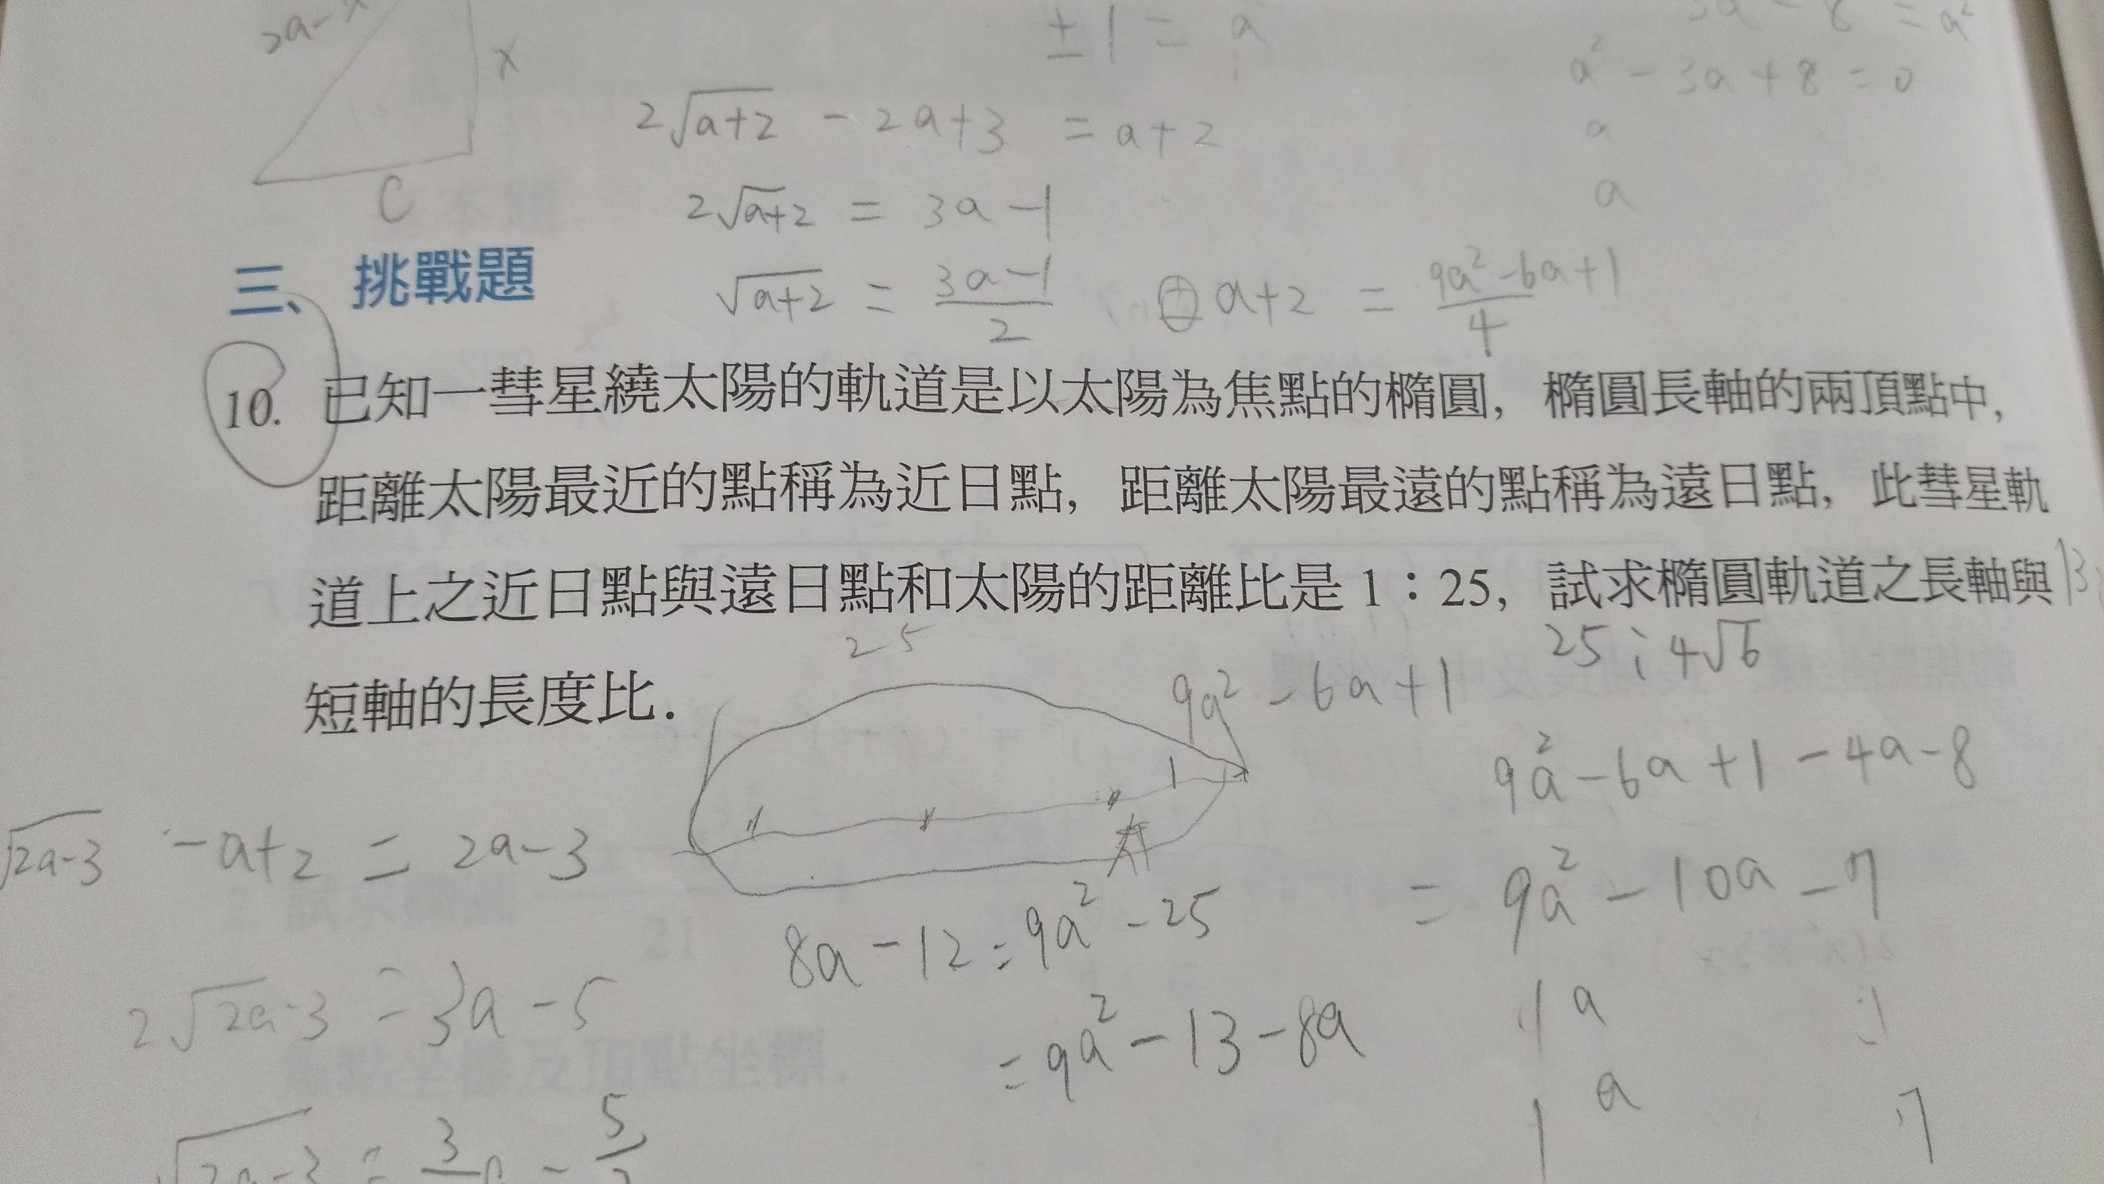 2a-x
x
C
±1 = a
3a - 8 = a²
a² - 3a + 8 = 0
a
a
2√a+2 - 2a+3 = a+2
2√a+2 = 3a-1
√a+2 = 3a-1/2
a+2 = 9a²-6a+1/4
三、挑戰題
10. 已知一彗星繞太陽的軌道是以太陽為焦點的橢圓，橢圓長軸的兩頂點中，
距離太陽最近的點稱為近日點，距離太陽最遠的點稱為遠日點，此彗星軌
道上之近日點與遠日點和太陽的距離比是 1：25，試求橢圓軌道之長軸與 13
短軸的長度比．
25
25 : 4√6
9a² - 6a + 1
1
9a² - 6a + 1 - 4a - 8
= 9a² - 10a - 7
1a
a
1
7
√2a-3 - a+2 = 2a-3
8a - 12 = 9a² - 25
= 9a² - 13 - 8a
2√2a-3 = 3a - 5
√2a-3 = 3
5